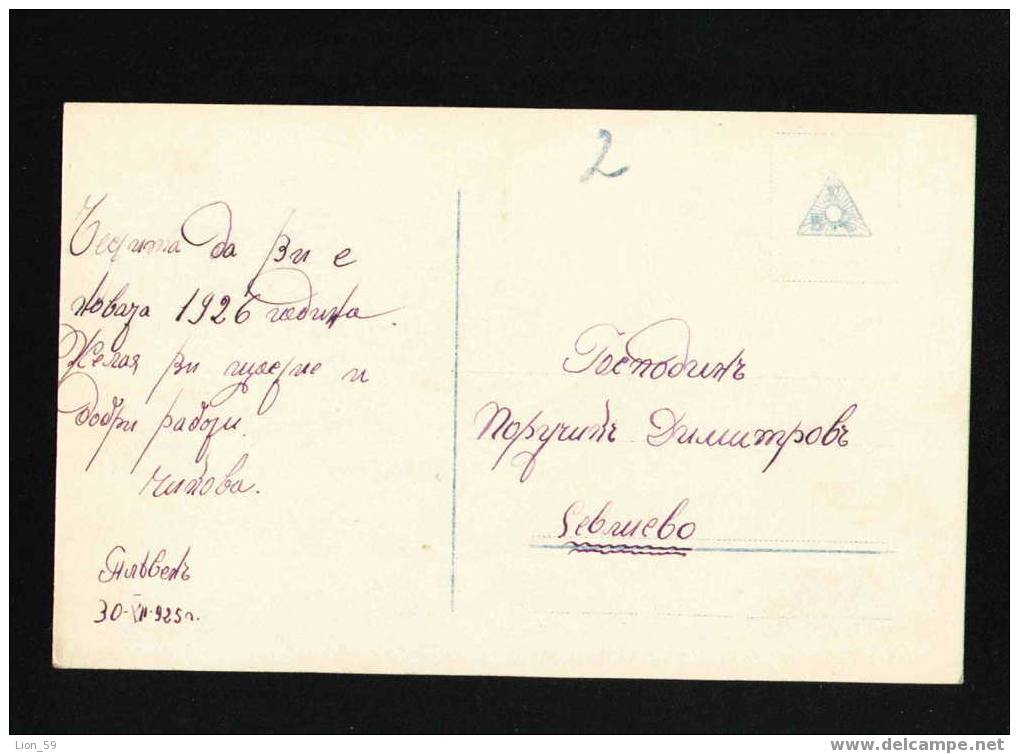 2
Честита да ви е
новата 1926 година.
Желая ви щастие и
добри работи.
Плѣвенъ
30-XII-925г.
Господинъ
Димитровъ
Севлиево
Lion_59
www.delcampe.net